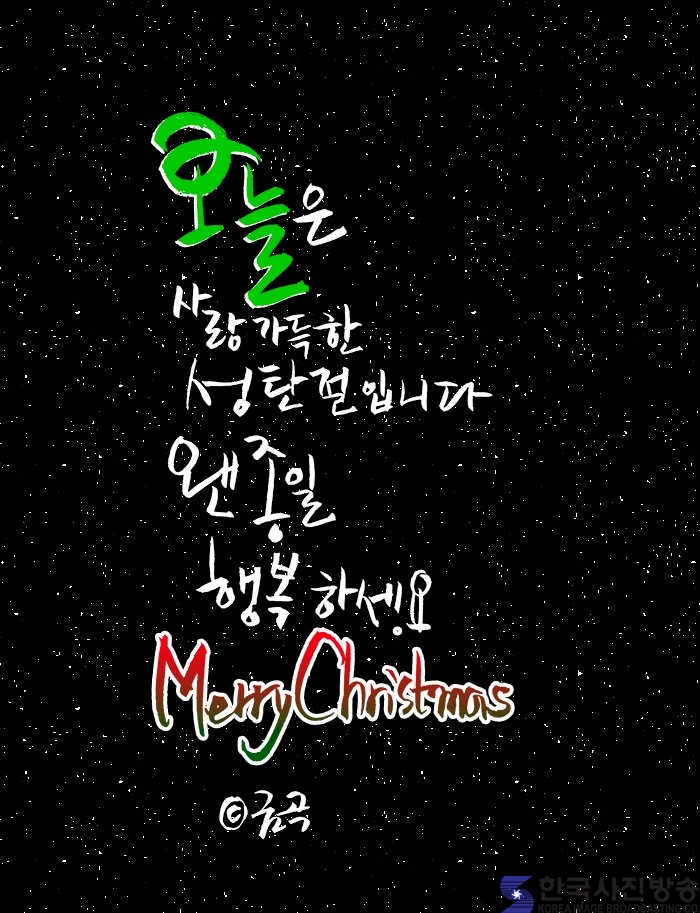 오늘은
사랑가득한
성탄절입니다
왠종일
행복하세요
Merry Christmas
©금곡
한국사진방송
KOREA IMAGE BROADCASTING.CO